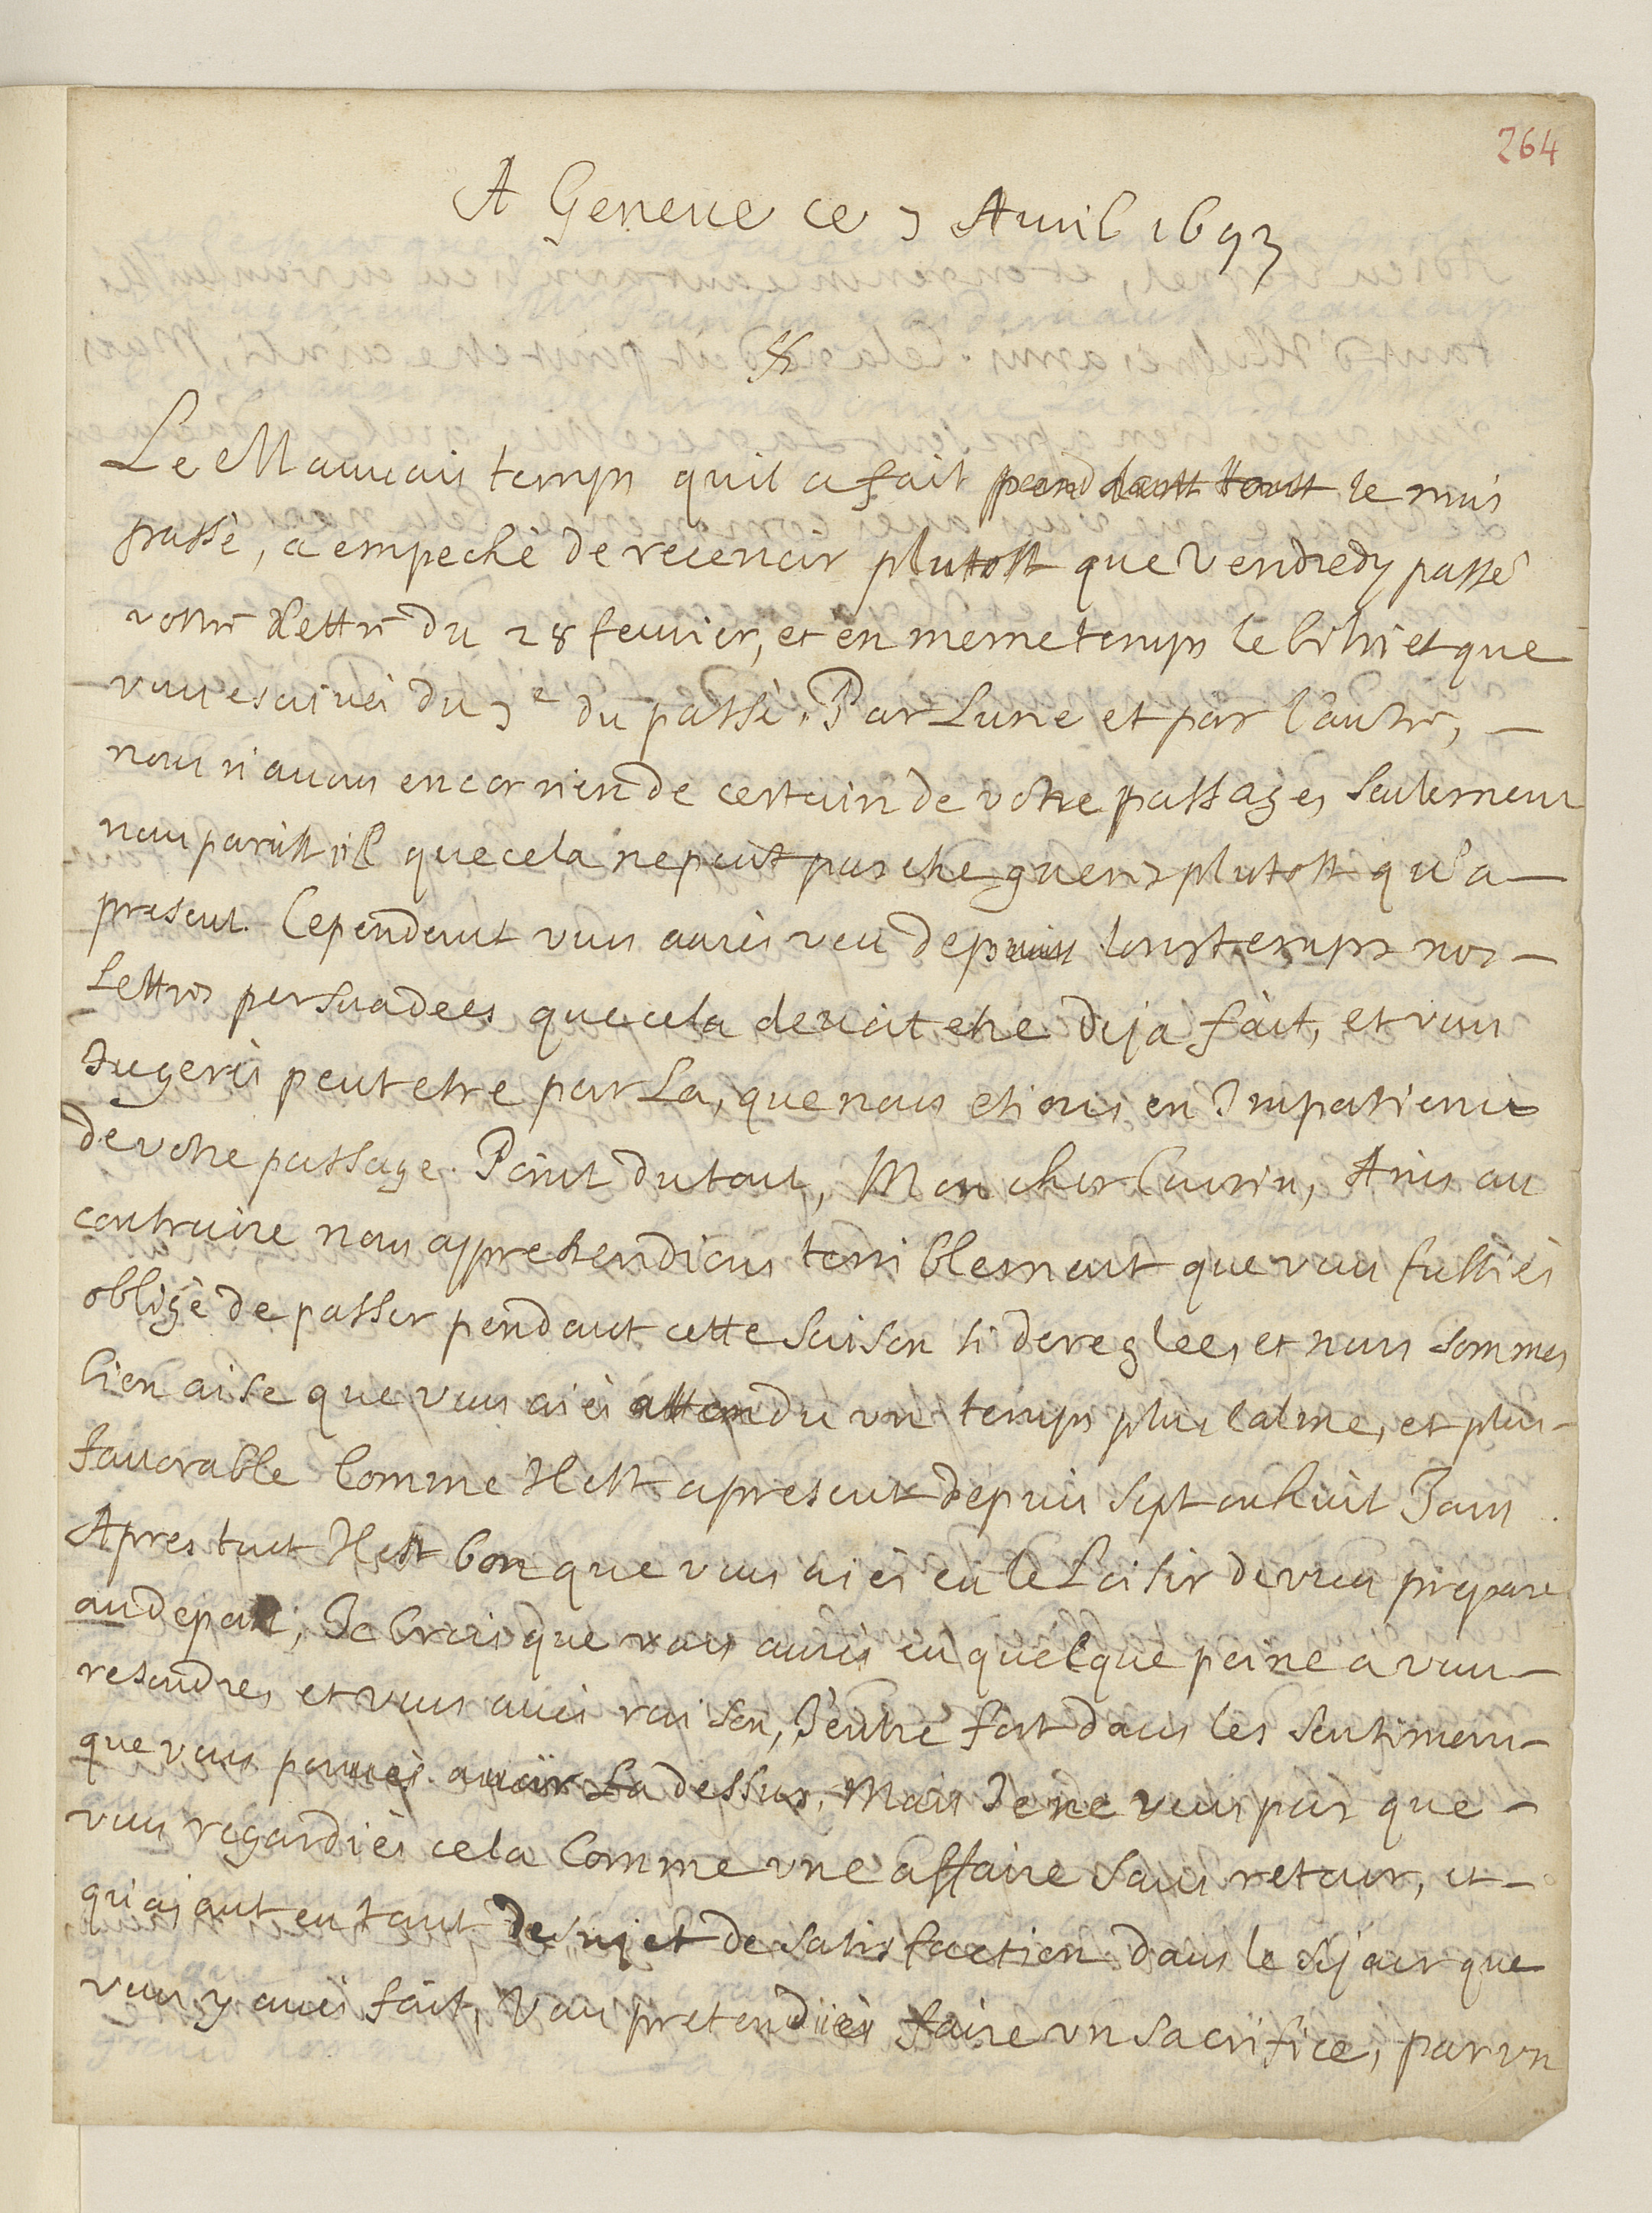 264
A Geneue ce 3 Auril 1693
Le Mauuais temps quil a fait pendant tout le mois
passé, a empeché de receuoir plutost que Vendredy passé
vostre Lettre du 28 feurier, et en meme temps le billet que
vous escriués du 3e du passé. Par Lune et par l'autre, –
nous n'auons encor rien de certain de votre passage, Seulement
nous paroist il que cela ne peut pas etre gueres plutost qu'a –
present. Cependant vous aurés veu depuis longtemps nos –
Lettres persuadées que cela deuoit etre deja fait, et vous
Jugerés peut etre par La, que nous etions en Impatience
de votre passage. Point du tout, Mon cher Cousin, Ains au
contraire nous apprehendions terriblement que vous fussiés
obligé de passer pendant cette Saison si dereglée, et nous sommes
bien aise que vous aiés attendu vn temps plus Calme, et plus –
fauorable Comme Il est apresent depuis Sept ou huit Jours.
Apres tout Il est bon que vous aiés eu le Loisir de vous preparer
au depart, Je Crois que vous aurés eu quelque peine a vous –
resoudre, et vous aués raison, J'entre fort dans les Sentimens –
que vous pouués auoir La dessus, Mais Je ne veus pas que –
vous regardiés cela Comme vne affaire Sans retour, et –
qu'aiant eu tant de sujet de satisfaction dans le sejour que
vous y aués fait, Vous pretendiés faire vn sacrifice, par vn